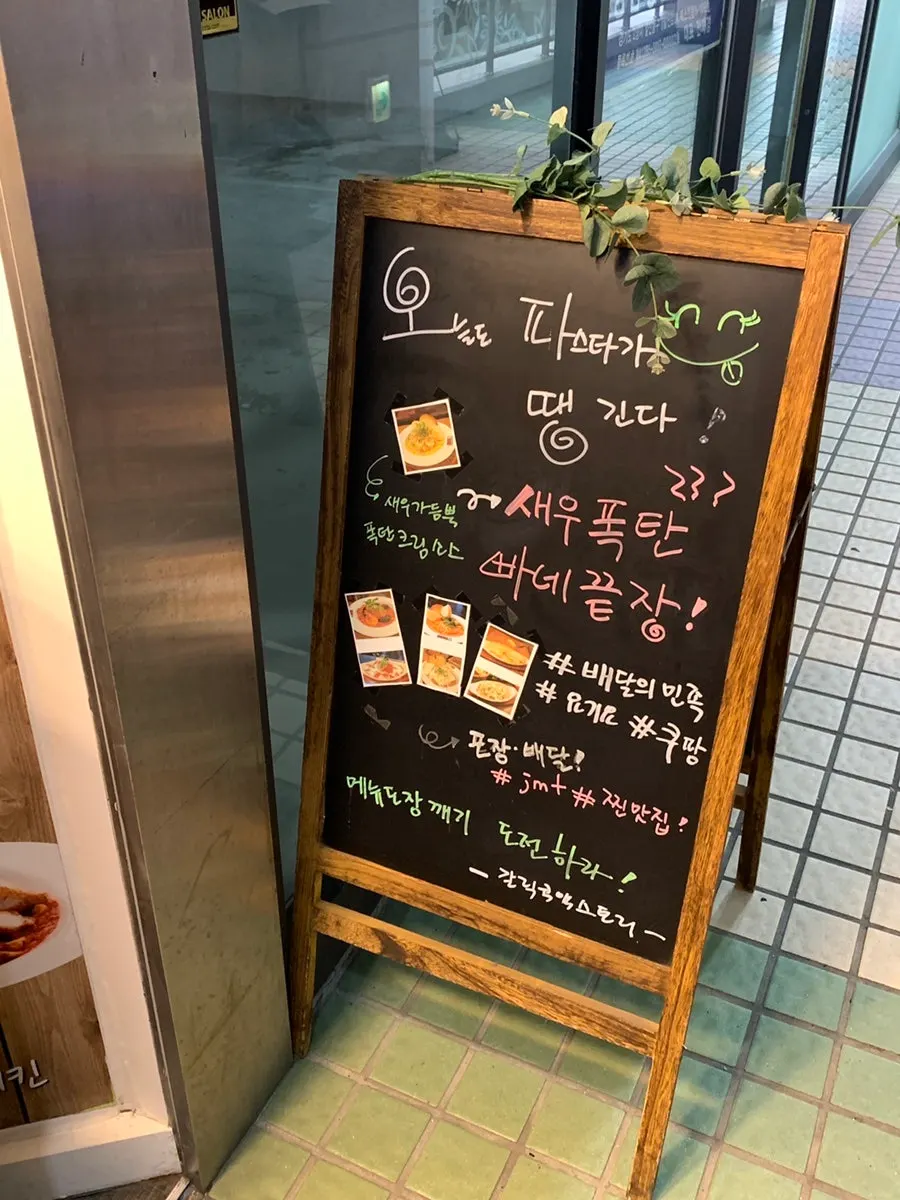 SALON
오늘도 파스타가
땡긴다!
새우가듬뿍
폭탄크림소스
새우폭탄
빠네끝장!
#배달의민족
#요기요 #쿠팡
포장·배달!
#jmt #찐맛집!
메뉴도장깨기 도전하라!
- 갈릭흑악스토리. -
키킨